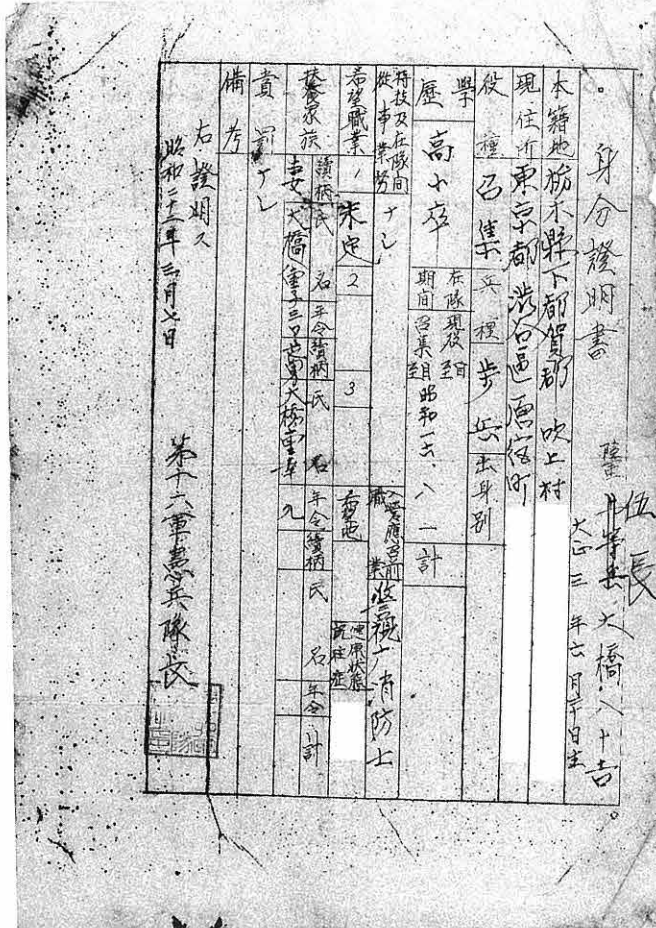 身分證明書
陸軍 伍長 大橋八十吉
大正三年六月 日生
本籍地 栃木縣下都賀郡吹上村
現住所 東京都澁谷區原宿町
役種 召集 兵種 歩兵 出身別
學歴 高小卒 在隊期間 現役 自 至 召集 自 昭和一六、八、一 至 計
特技及在隊間從事業務 ナシ 入營應召前職業 警視庁消防士
希望職業 1 未定 2 3 希望地 健康状態 既往症
扶養家族 續柄 氏名 年令 續柄 氏名 年令 續柄 氏名 年令 計
長女 大橋 子 三口 男 大橋 九
賞罰 ナシ
備考
右證明ス
昭和二十二年三月七日
第十六軍憲兵隊長